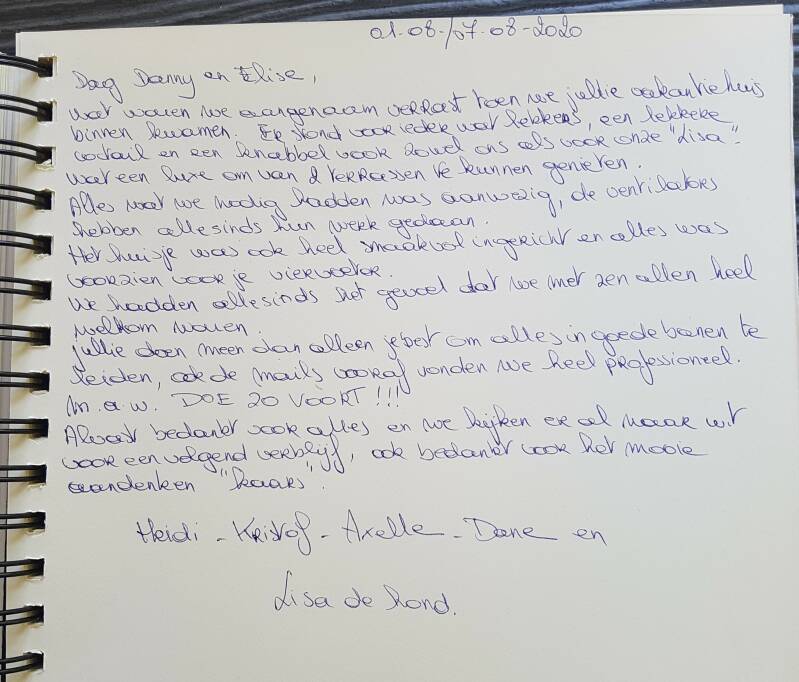 01-08-/07-08-2020
Dag Danny en Elise,
wat waren we aangenaam verrast toen we jullie vakantiehuis
binnen kwamen. Er stond voor ieder wat lekkers, een lekkere
coctail en een knabbel voor zowel ons als voor onze "Lisa".
wat een luxe om van 2 terrassen te kunnen genieten.
Alles wat we nodig hadden was aanwezig, de ventilators
hebben allesinds hun werk gedaan.
Het huisje was ook heel smaakvol ingericht en alles was
voorzien voor je viervoeter.
We hadden allesinds het gevoel dat we met zen allen heel
welkom waren.
jullie doen meer dan alleen je best om alles in goede banen te
leiden, ook de mails vooraf vonden we heel professioneel.
m.a.w. DOE ZO VOORT!!!
Alvast bedankt voor alles en we kijken er al naar uit
voor een volgend verblijf, ook bedankt voor het mooie
aandenken "kaars".
Heidi - Kristof - Axelle - Dane en
Lisa de hond.